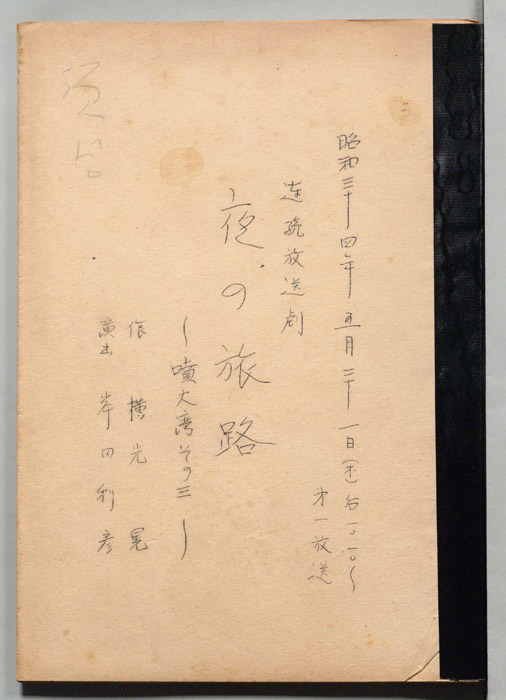 昭和三十四年五月二十一日(木)后一〇.一〇〜
才一放送
連続放送劇
夜の旅路
〜噴火湾その三〜
作 横光 晃
演出 岸田利彦